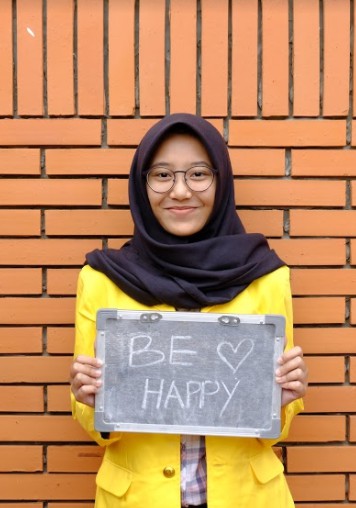 BE ♡
HAPPY